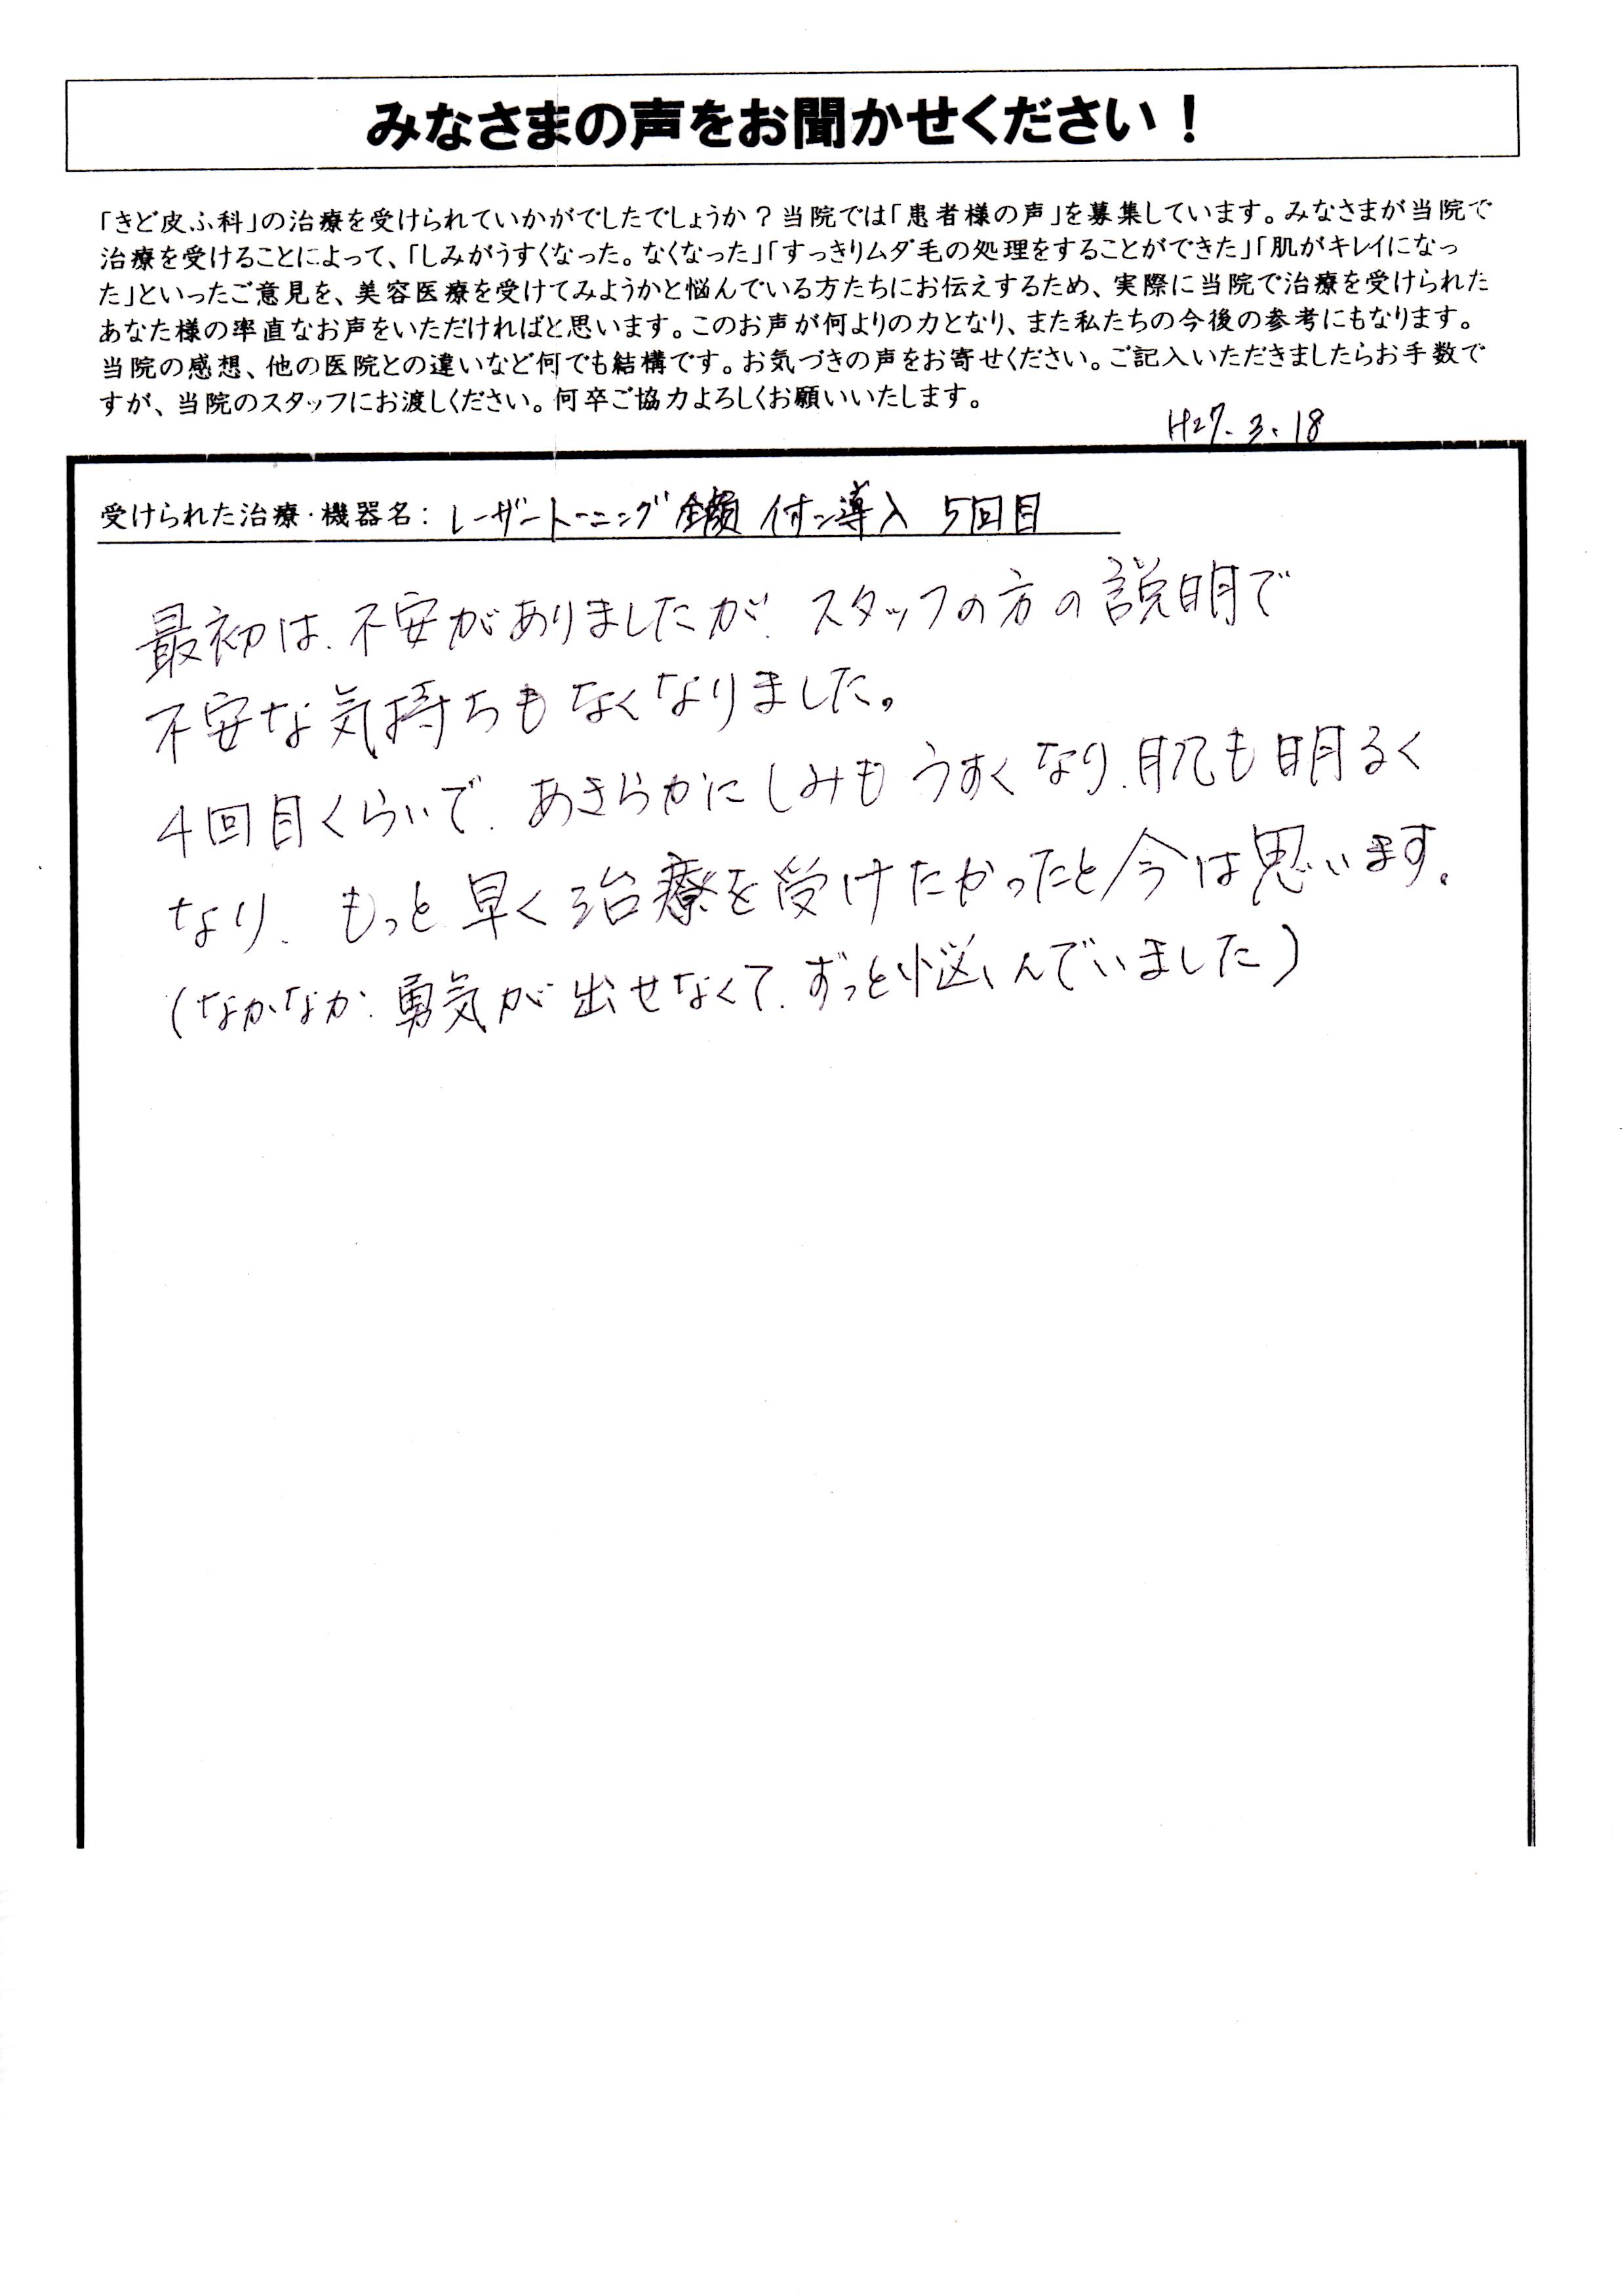 みなさまの声をお聞かせください！
「きど皮ふ科」の治療を受けられていかがでしたでしょうか？当院では「患者様の声」を募集しています。みなさまが当院で
治療を受けることによって、「しみがうすくなった。なくなった」「すっきりムダ毛の処理をすることができた」「肌がキレイになっ
た」といったご意見を、美容医療を受けてみようかと悩んでいる方たちにお伝えするため、実際に当院で治療を受けられた
あなた様の率直なお声をいただければと思います。このお声が何よりの力となり、また私たちの今後の参考にもなります。
当院の感想、他の医院との違いなど何でも結構です。お気づきの声をお寄せください。ご記入いただきましたらお手数で
すが、当院のスタッフにお渡しください。何卒ご協力よろしくお願いいたします。
H27.3.18
受けられた治療・機器名：レーザートーニング全顔 イオン導入 5回目
最初は、不安がありましたが、スタッフの方の説明で
不安な気持ちもなくなりました。
4回目くらいで、あきらかにしみもうすくなり、肌も明るく
なり、もっと早く治療を受けたかったと今は思います。
（なかなか、勇気が出せなくて、ずっと悩んでいました）